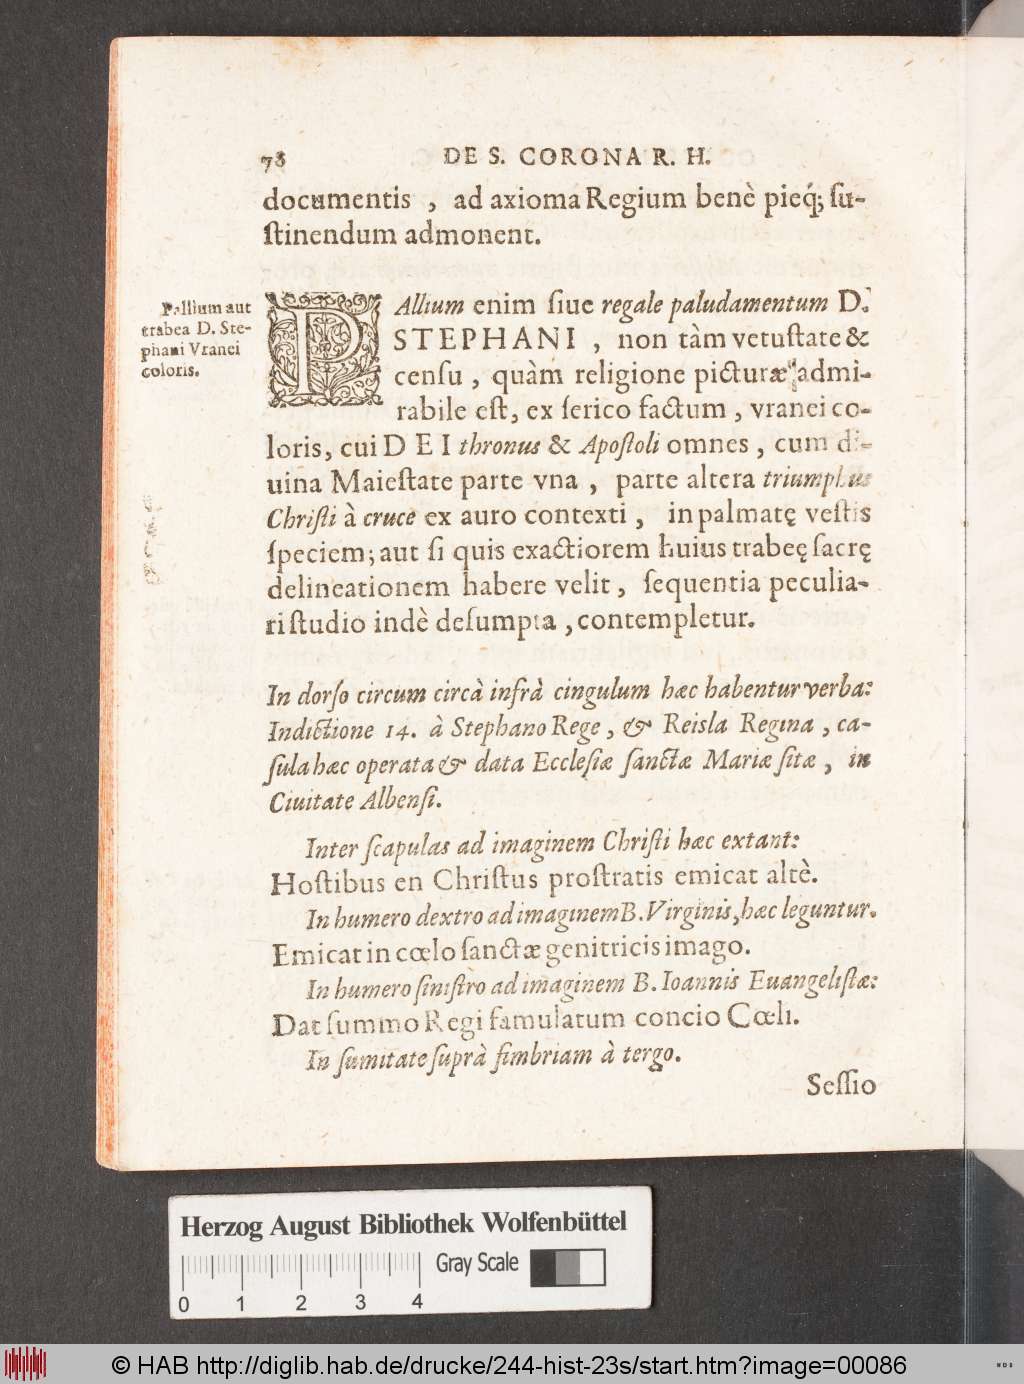 78 DE S. CORONA R. H.
documentis , ad axioma Regium benè pieq́; ſu-
ſtinendum admonent.
Pallium aut
trabea D. Ste-
phani Vranei
coloris.
PAllium enim ſiue regale paludamentum D.
STEPHANI , non tàm vetuſtate &
cenſu , quàm religione picturæ admi-
rabile eſt, ex ſerico factum , vranei co-
loris, cui DEI thronus & Apoſtoli omnes , cum di-
uina Maieſtate parte vna , parte altera triumphus
Chriſti à cruce ex auro contexti , in palmatę veſtis
ſpeciem; aut ſi quis exactiorem huius trabeę ſacrę
delineationem habere velit , ſequentia peculia-
ri ſtudio indè deſumpta , contempletur.
In dorſo circum circà infrà cingulum hæc habentur verba:
Indictione 14. à Stephano Rege , & Reisla Regina , ca-
ſula hæc operata & data Eccleſiæ ſanctæ Mariæ ſitæ , in
Ciuitate Albenſi.
Inter ſcapulas ad imaginem Chriſti hæc extant:
Hoſtibus en Chriſtus proſtratis emicat altè.
In humero dextro ad imaginem B. Virginis, hæc leguntur.
Emicat in cœlo ſanctæ genitricis imago.
In humero ſiniſtro ad imaginem B. Ioannis Euangeliſtæ:
Dat ſummo Regi famulatum concio Cœli.
In ſumitate ſuprà fimbriam à tergo.
Seſſio
Herzog August Bibliothek Wolfenbüttel
Gray Scale
0 1 2 3 4
© HAB http://diglib.hab.de/drucke/244-hist-23s/start.htm?image=00086